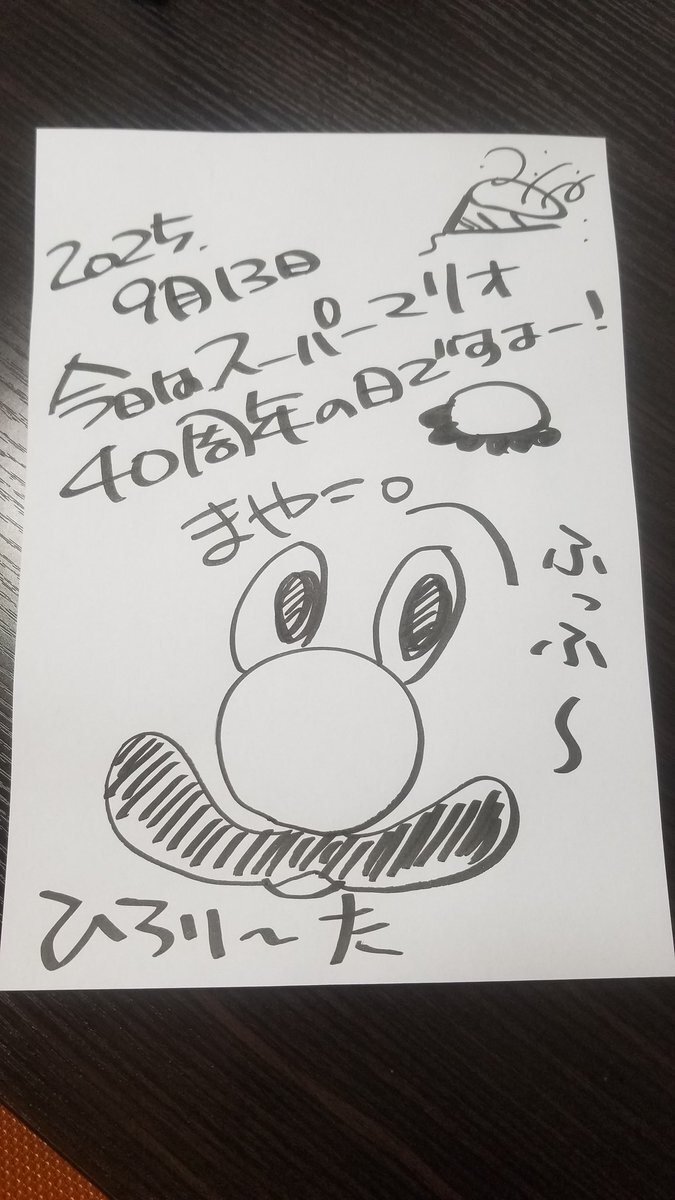 2025.
9月13日
今日はスーパーマリオ
40周年の日ですよー！
まやこ。
ふっふ〜
ひろり〜た